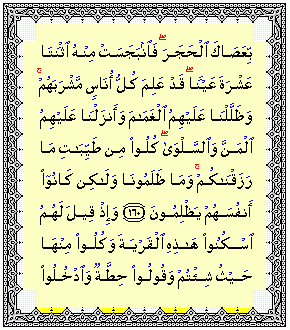 بِّعَصَاكَ ٱلْحَجَرَ ۖ فَٱنۢبَجَسَتْ مِنْهُ ٱثْنَتَا
عَشْرَةَ عَيْنًا ۖ قَدْ عَلِمَ كُلُّ أُنَاسٍ مَّشْرَبَهُمْ ۚ
وَظَلَّلْنَا عَلَيْهِمُ ٱلْغَمَٰمَ وَأَنزَلْنَا عَلَيْهِمُ
ٱلْمَنَّ وَٱلسَّلْوَىٰ ۖ كُلُوا۟ مِن طَيِّبَٰتِ مَا
رَزَقْنَٰكُمْ ۚ وَمَا ظَلَمُونَا وَلَٰكِن كَانُوٓا۟
أَنفُسَهُمْ يَظْلِمُونَ ﴿١٦٠﴾ وَإِذْ قِيلَ لَهُمُ
ٱسْكُنُوا۟ هَٰذِهِ ٱلْقَرْيَةَ وَكُلُوا۟ مِنْهَا
حَيْثُ شِئْتُمْ وَقُولُوا۟ حِطَّةٌ وَٱدْخُلُوا۟